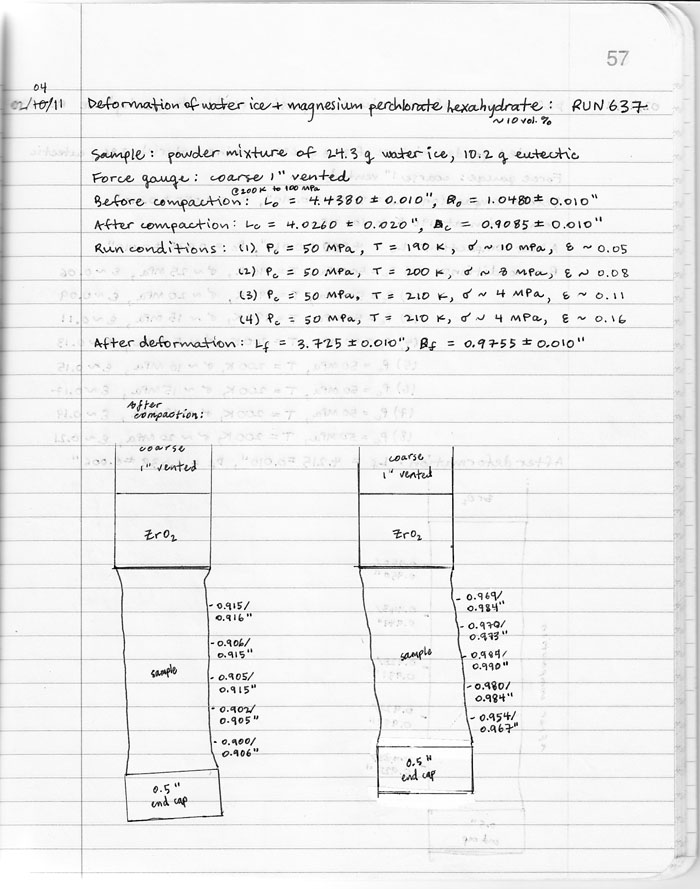 57
04
02/10/11 Deformation of water ice + magnesium perchlorate hexahydrate: RUN 637
~10 vol. %
Sample: powder mixture of 24.3 g water ice, 10.2 g eutectic
Force gauge: coarse 1" vented
@200 K to 100 MPa
Before compaction: L₀ = 4.4380 ± 0.010", Ø₀ = 1.0480 ± 0.010"
After compaction: Lc = 4.0260 ± 0.020", Øc = 0.9085 ± 0.010"
Run conditions: (1) Pc = 50 MPa, T = 190 K, σ ~ 10 MPa, ε ~ 0.05
(2) Pc = 50 MPa, T = 200 K, σ ~ 8 MPa, ε ~ 0.08
(3) Pc = 50 MPa, T = 210 K, σ ~ 4 MPa, ε ~ 0.11
(4) Pc = 50 MPa, T = 210 K, σ ~ 4 MPa, ε ~ 0.16
After deformation: Lf = 3.725 ± 0.010", Øf = 0.9755 ± 0.010"
After
compaction:
coarse
1" vented
ZrO₂
- 0.915/
0.916"
- 0.906/
0.915"
sample
- 0.905/
0.915"
- 0.902/
0.905"
- 0.900/
0.906"
0.5"
end cap
coarse
1" vented
ZrO₂
- 0.969/
0.984"
- 0.970/
0.973"
sample
- 0.984/
0.990"
- 0.980/
0.984"
- 0.954/
0.967"
0.5"
end cap